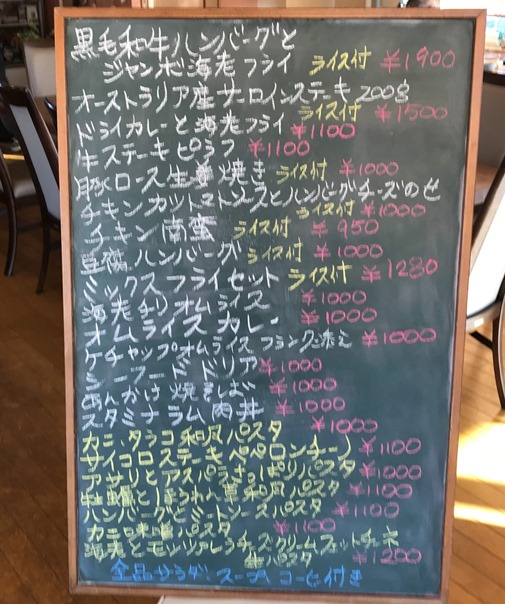 黒毛和牛ハンバーグと
ジャンボ海老フライ ライス付 ¥1900
オーストラリア産サーロインステーキ200g
ライス付 ¥1500
ドライカレーと海老フライ ¥1100
牛ステーキピラフ ¥1100
豚ロース生姜焼き ライス付 ¥1000
チキンカットマトソースとハンバーグチーズのせ
ライス付 ¥1000
チキン南蛮 ライス付 ¥950
ハンバーグ ライス付 ¥1000
ミックスフライセット ライス付 ¥1280
海老チリオムライス ¥1000
オムライスカレー ¥1000
ケチャップオムライスフランク添え ¥1000
シーフードドリア ¥1000
あんかけ焼きそば ¥1000
スタミナラム肉丼 ¥1000
カニ、タラコ和風パスタ ¥1000
サイコロステーキペペロンチーノ ¥1100
アサリとアスパラさっぱりパスタ ¥1000
牡蠣とほうれん草和風パスタ ¥1100
ハンバーグとミートソースパスタ ¥1100
カニ味噌パスタ ¥1100
海老とモッツァレラチーズクリームフェットチーネ
生パスタ ¥1200
全品サラダ、スープ、コーヒー付き